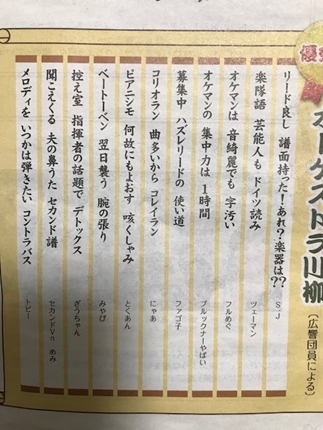 優秀
オーケストラ川柳
(広響団員による)
リード良し 譜面持った!あれ?楽器は?? S.J
楽隊語 芸能人も ドイツ読み ツェーマン
オケマンは 音綺麗でも 字汚い フルめぐ
オケマンの 集中力は 1時間 ブルックナーやばい
募集中 ハズレリードの 使い道 ファゴ子
コリオラン 曲多いから コレイラン にゃあ
ピアニシモ 何故にもよおす 咳くしゃみ とくあん
ベートーベン 翌日襲う 腕の張り みやび
控え室 指揮者の話題で デトックス ぞうちゃん
聞こえくる 夫の鼻うた セカンド譜 セカンドVn めみ
メロディを いつかは弾きたい コントラバス トビー